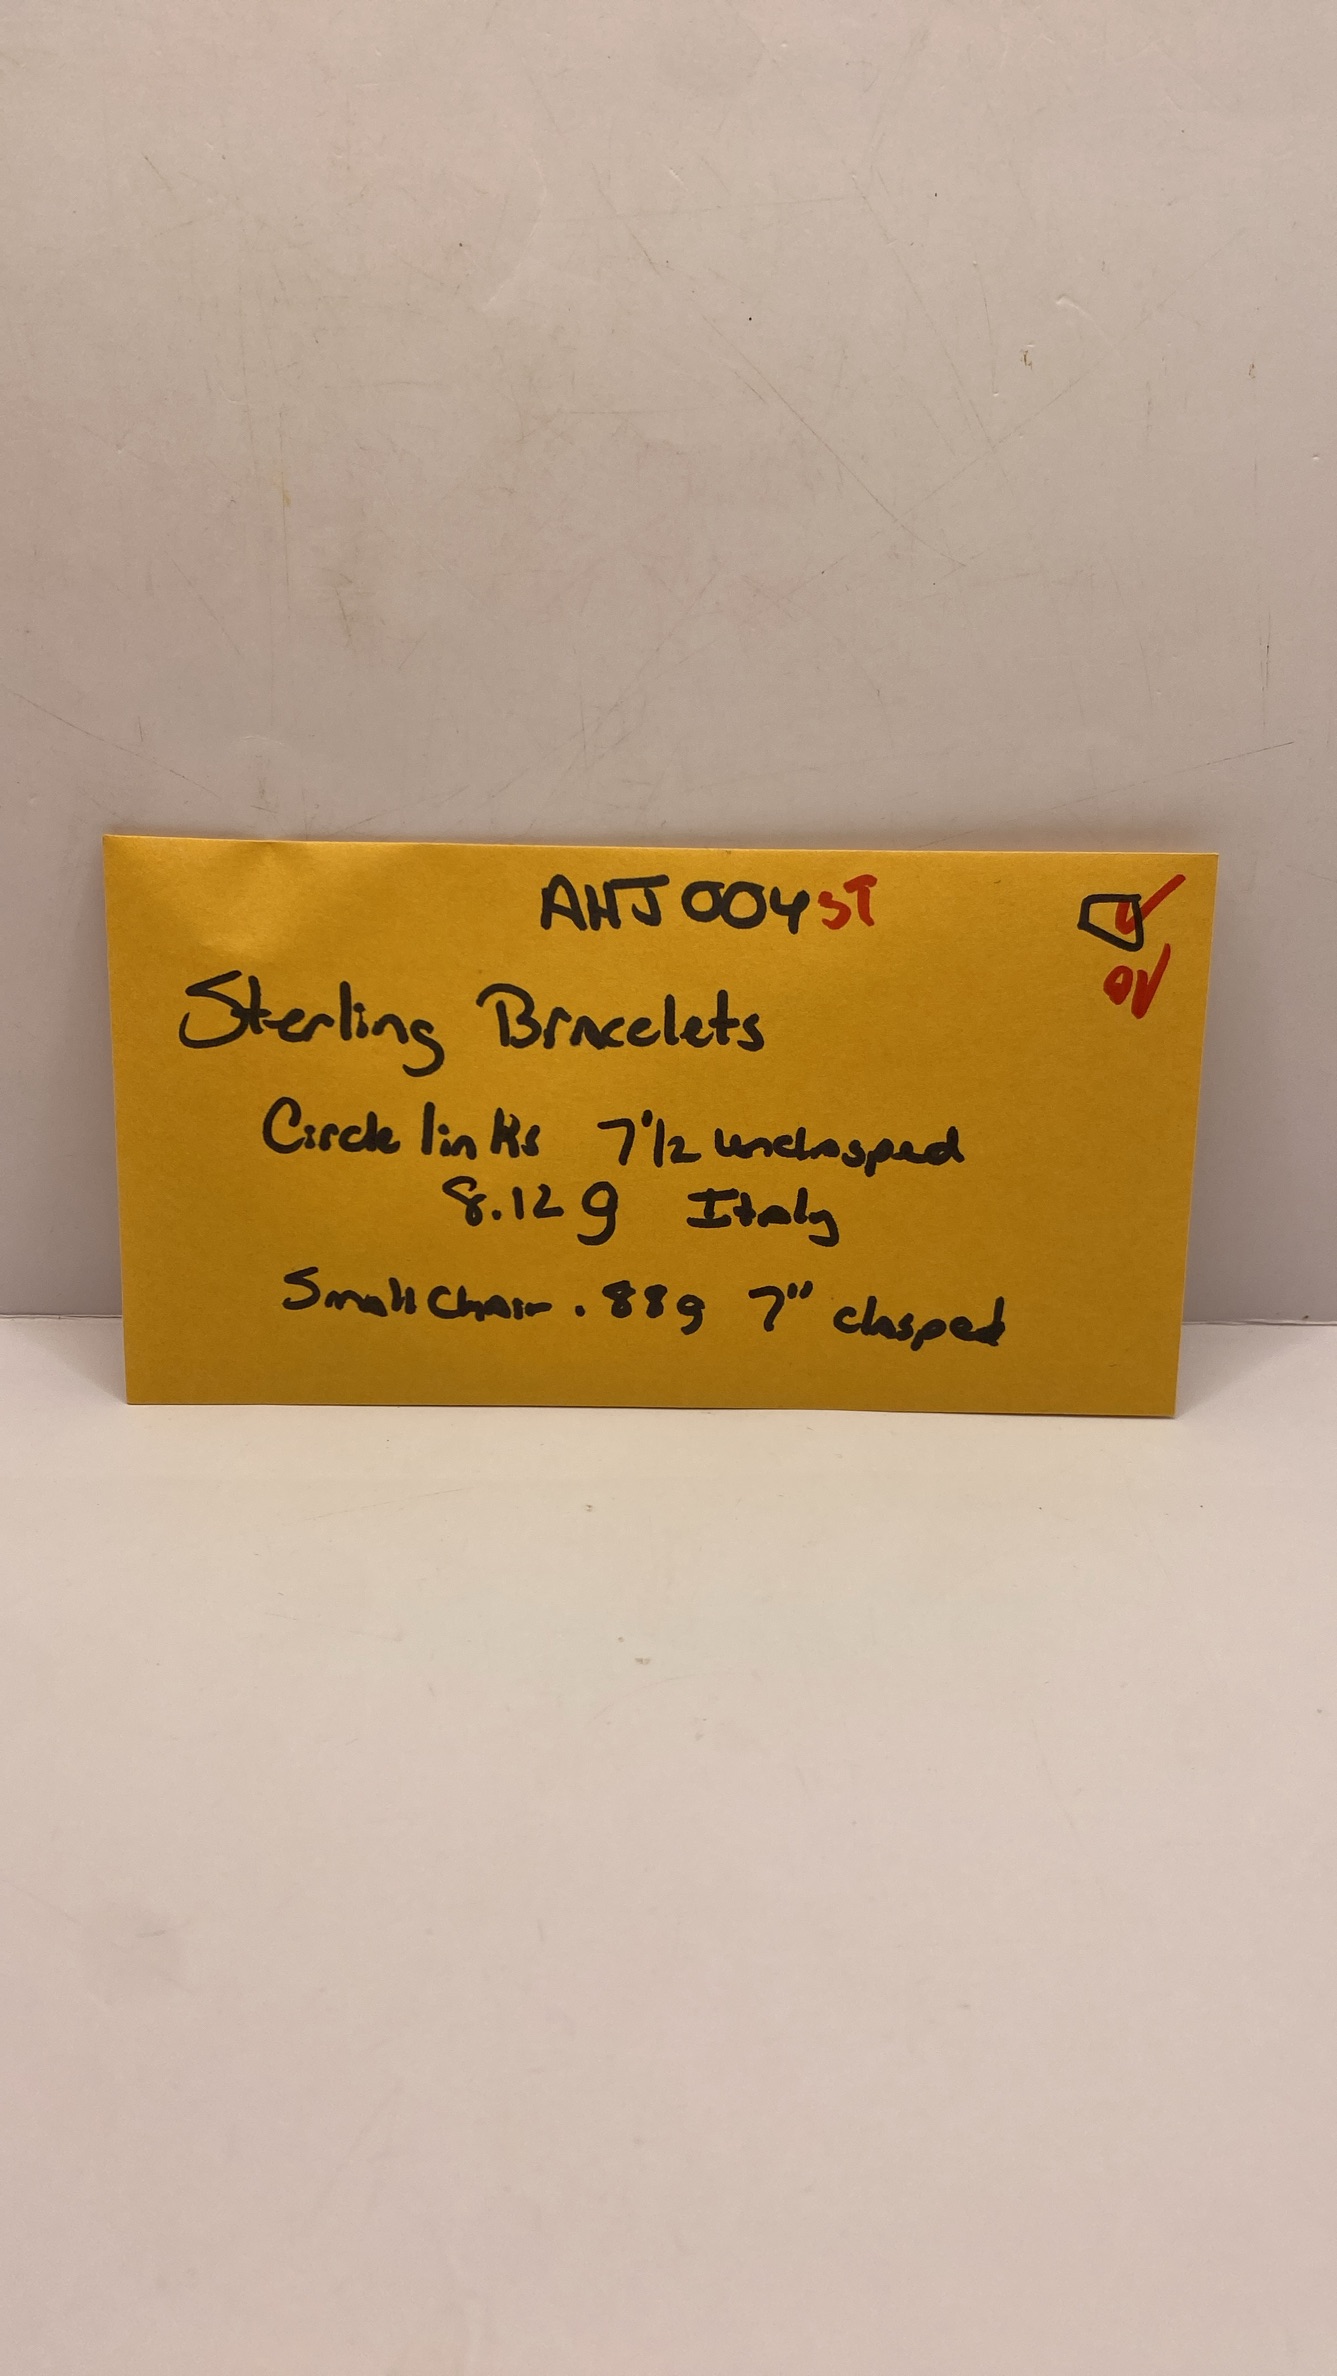 AHJ004ST
Sterling Bracelets
Circle links 7 1/2 unclasped
8.12g Italy
Small Chain .88g 7" clasped